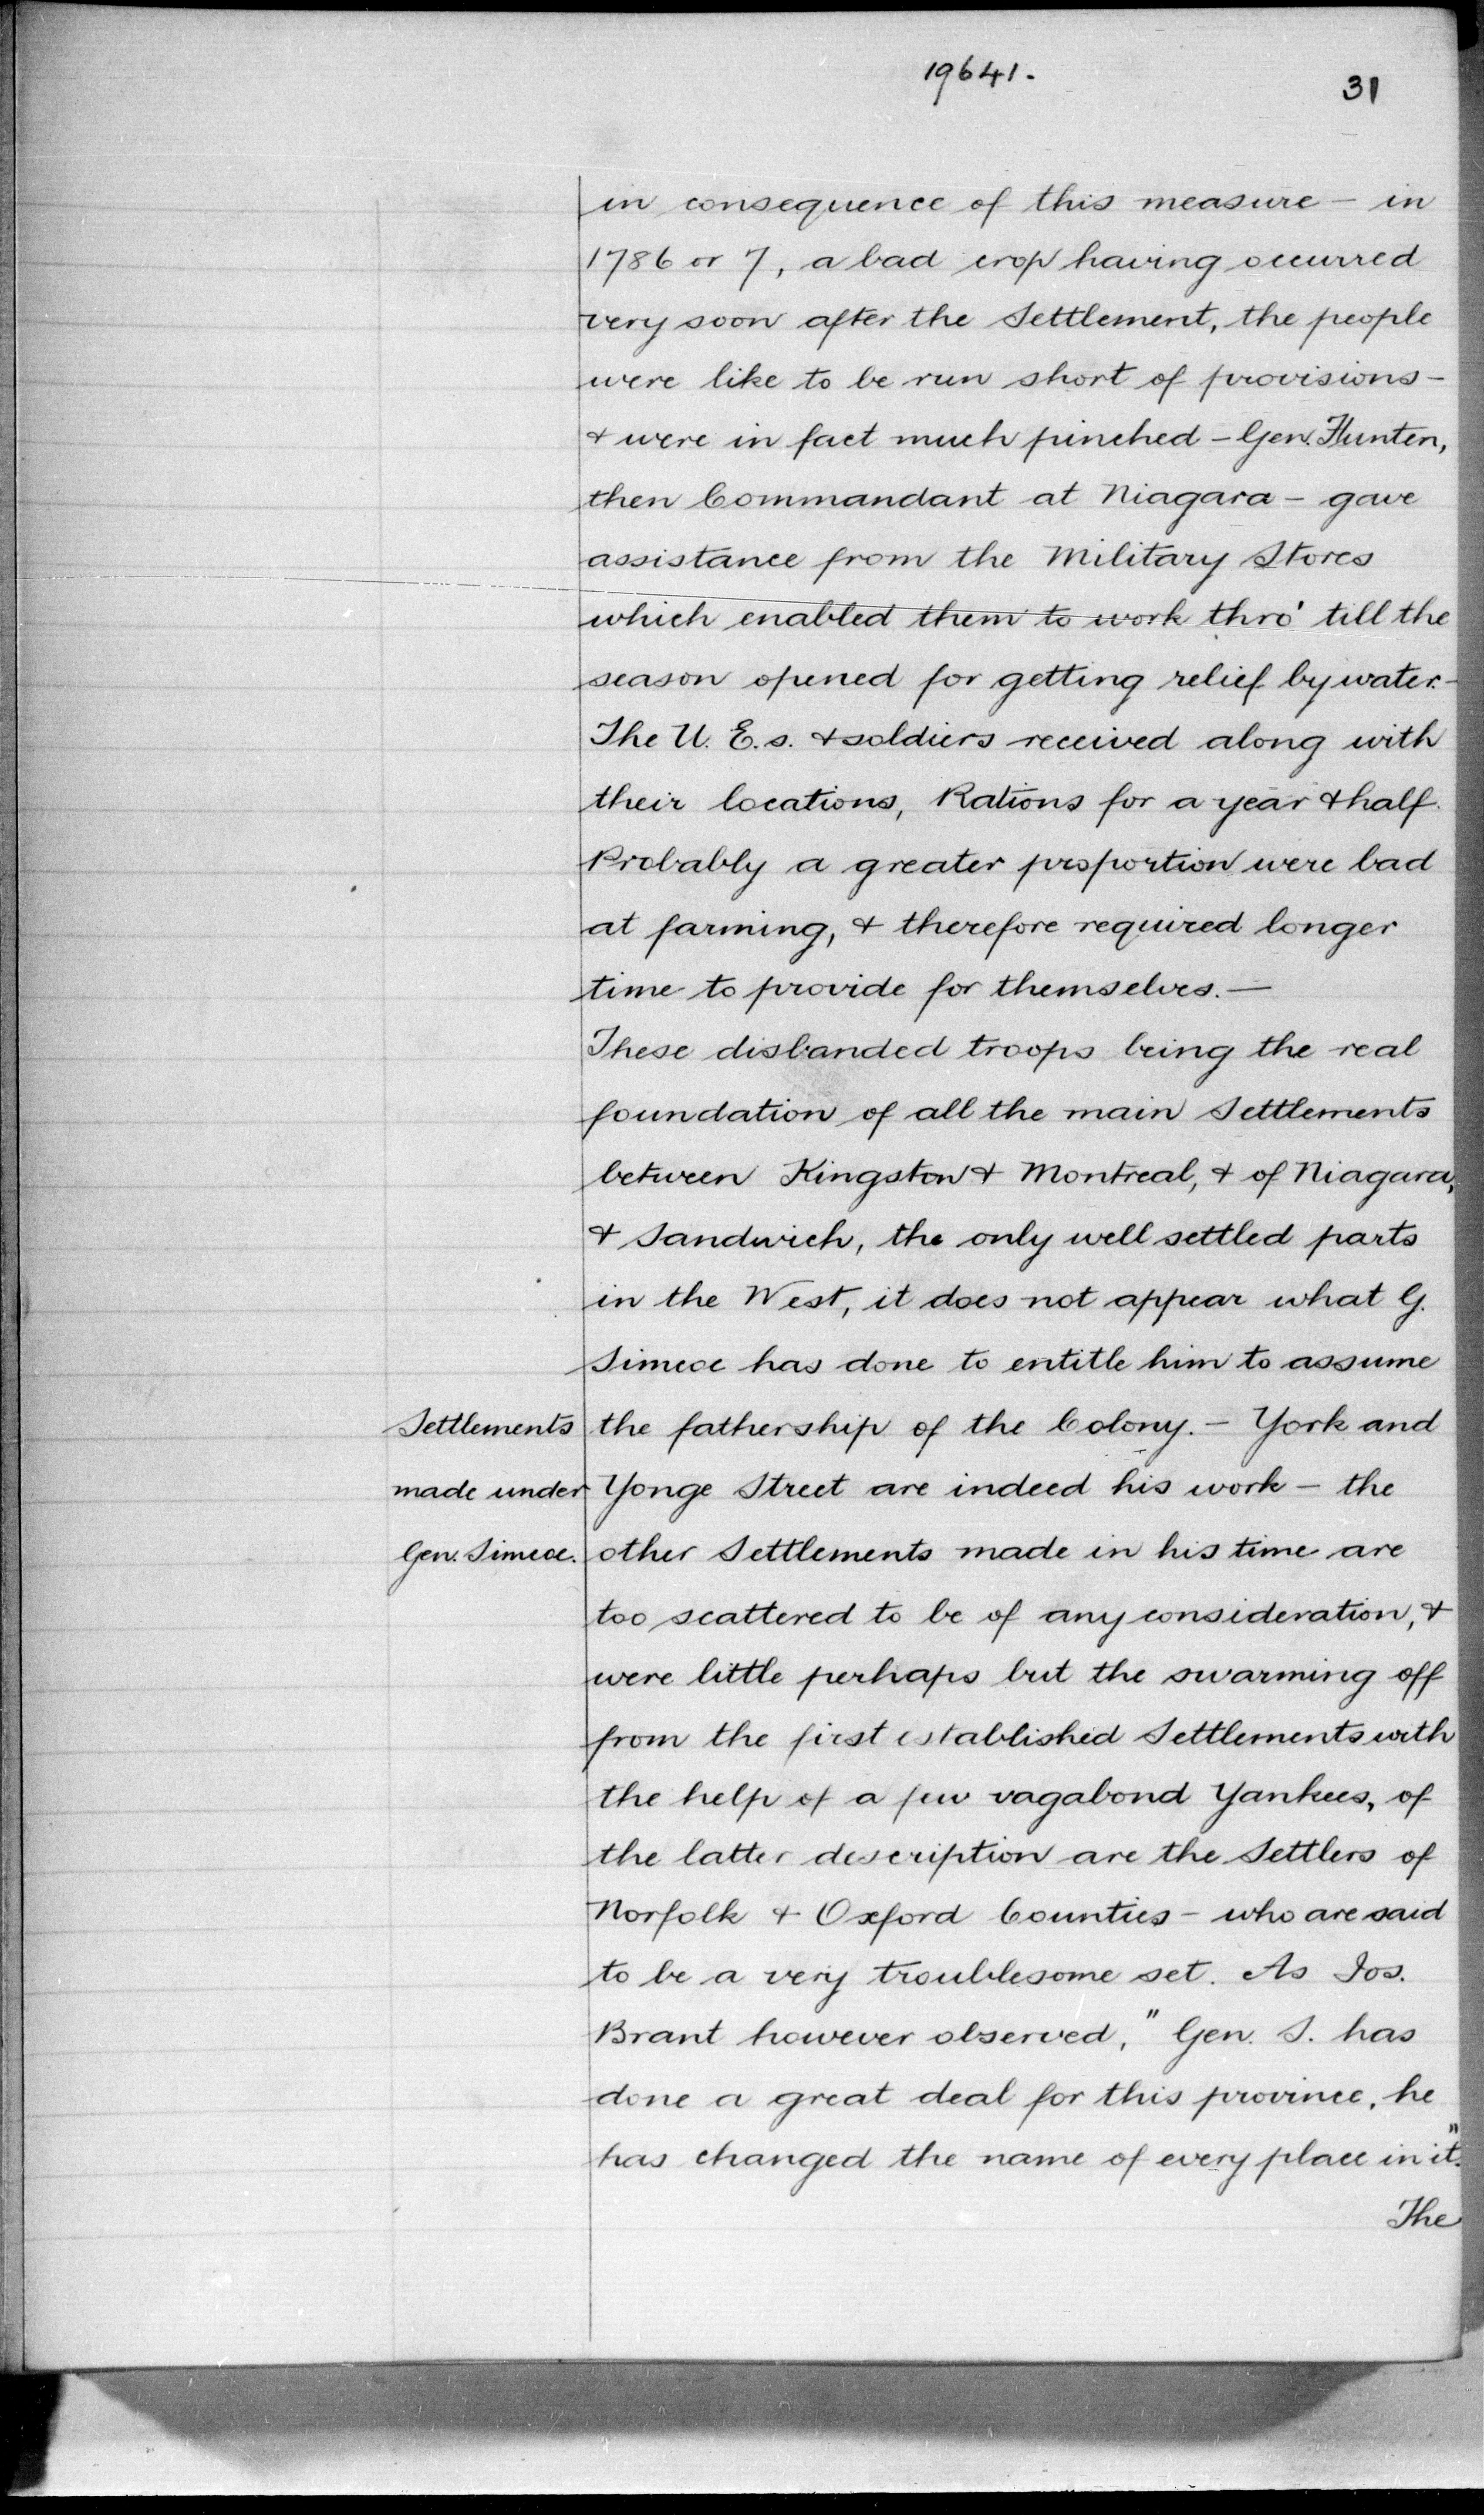 19641.
31
in consequence of this measure – in
1786 or 7, a bad crop having occurred
very soon after the Settlement, the people
were like to be run short of provisions –
& were in fact much pinched – Gen. Hunter,
then Commandant at Niagara – gave
assistance from the Military Stores
which enabled them to work thro' till the
season opened for getting relief by water. –
The U. E. s. & soldiers received along with
their locations, Rations for a year & half.
Probably a greater proportion were bad
at farming, & therefore required longer
time to provide for themselves. —
These disbanded troops being the real
foundation of all the main Settlements
between Kingston & Montreal, & of Niagara,
& Sandwich, the only well settled parts
in the West, it does not appear what G.
Simcoe has done to entitle him to assume
Settlements
made under
Gen. Simcoe.
the fathership of the Colony. – York and
Yonge Street are indeed his work – the
other Settlements made in his time are
too scattered to be of any consideration, &
were little perhaps but the swarming off
from the first established Settlements with
the help of a few vagabond Yankees, of
the latter description are the Settlers of
Norfolk & Oxford Counties – who are said
to be a very troublesome set. As Jos.
Brant however observed, "Gen. S. has
done a great deal for this province, he
has changed the name of every place in it."
The